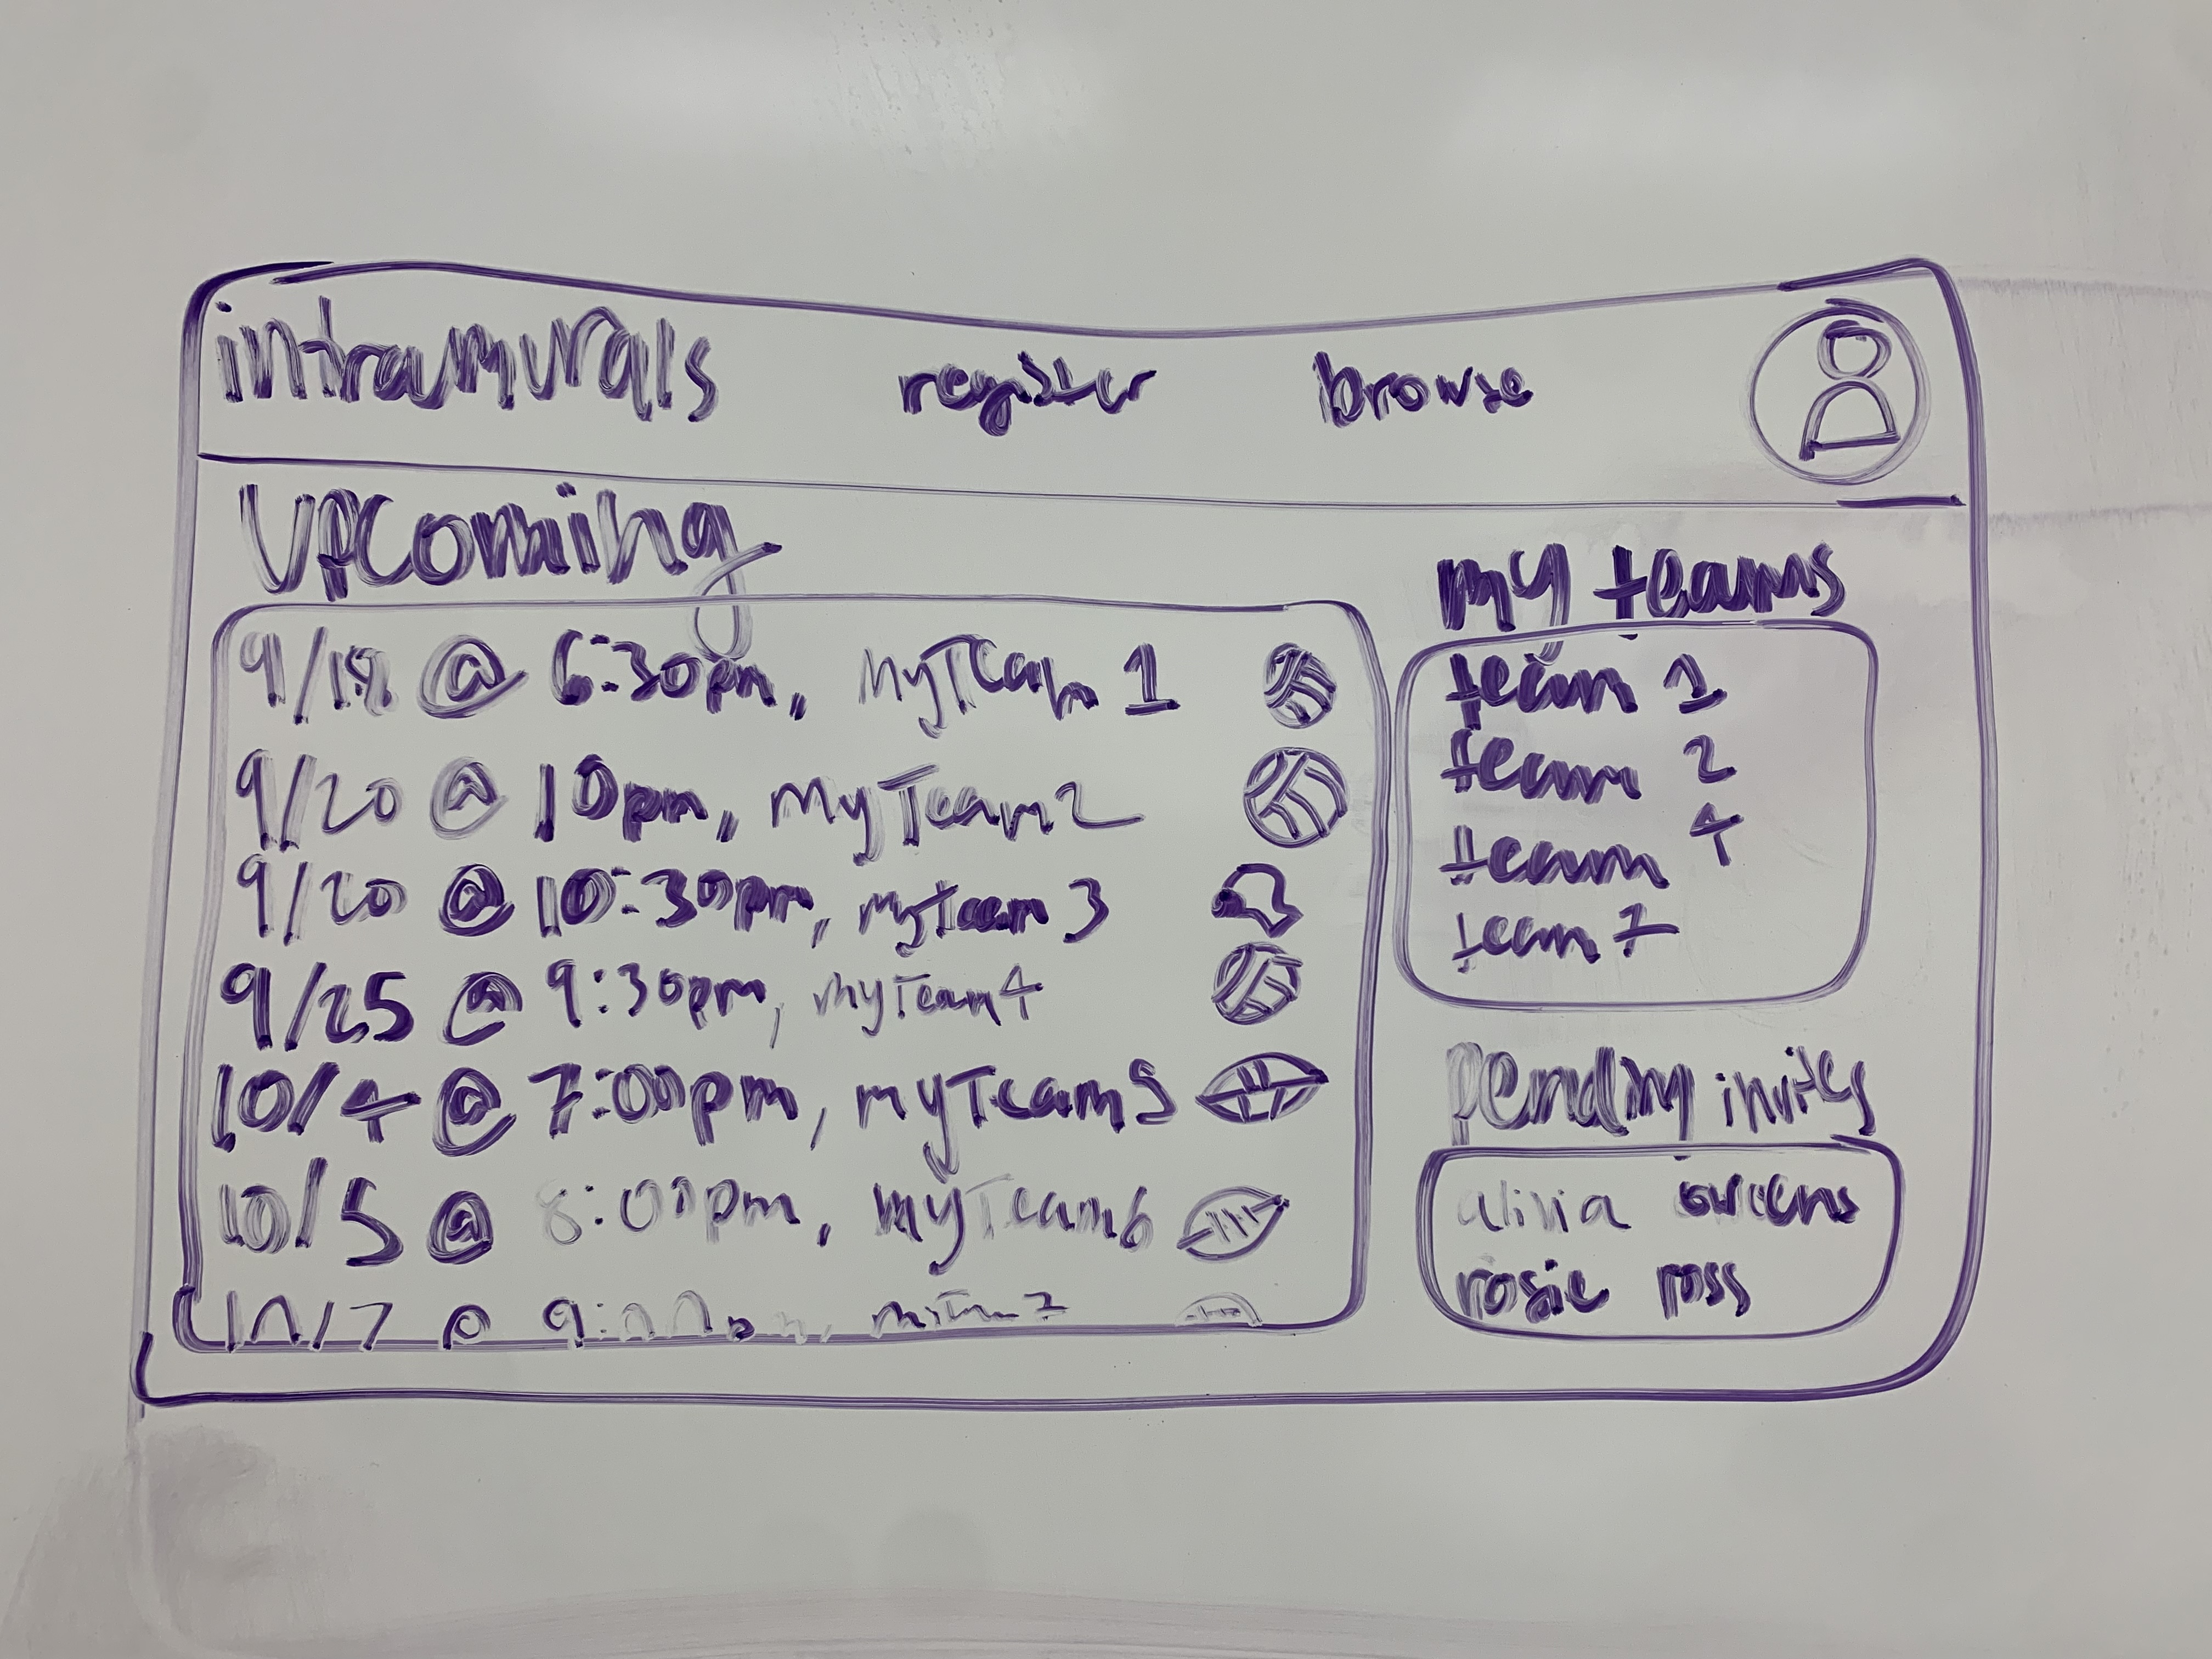 intramurals register browse
Upcoming
9/18 @ 6:30pm, MyTeam 1
9/20 @ 10pm, MyTeam2
9/20 @ 10:30pm, myTeam 3
9/25 @ 9:30pm, myTeam4
10/4 @ 7:00pm, myTeam5
10/5 @ 8:00pm, myTeam6
10/7 @ 9:00pm, myTeam7
my teams
team 1
team 2
team 4
team 7
pending invites
alivia owens
rosie ross